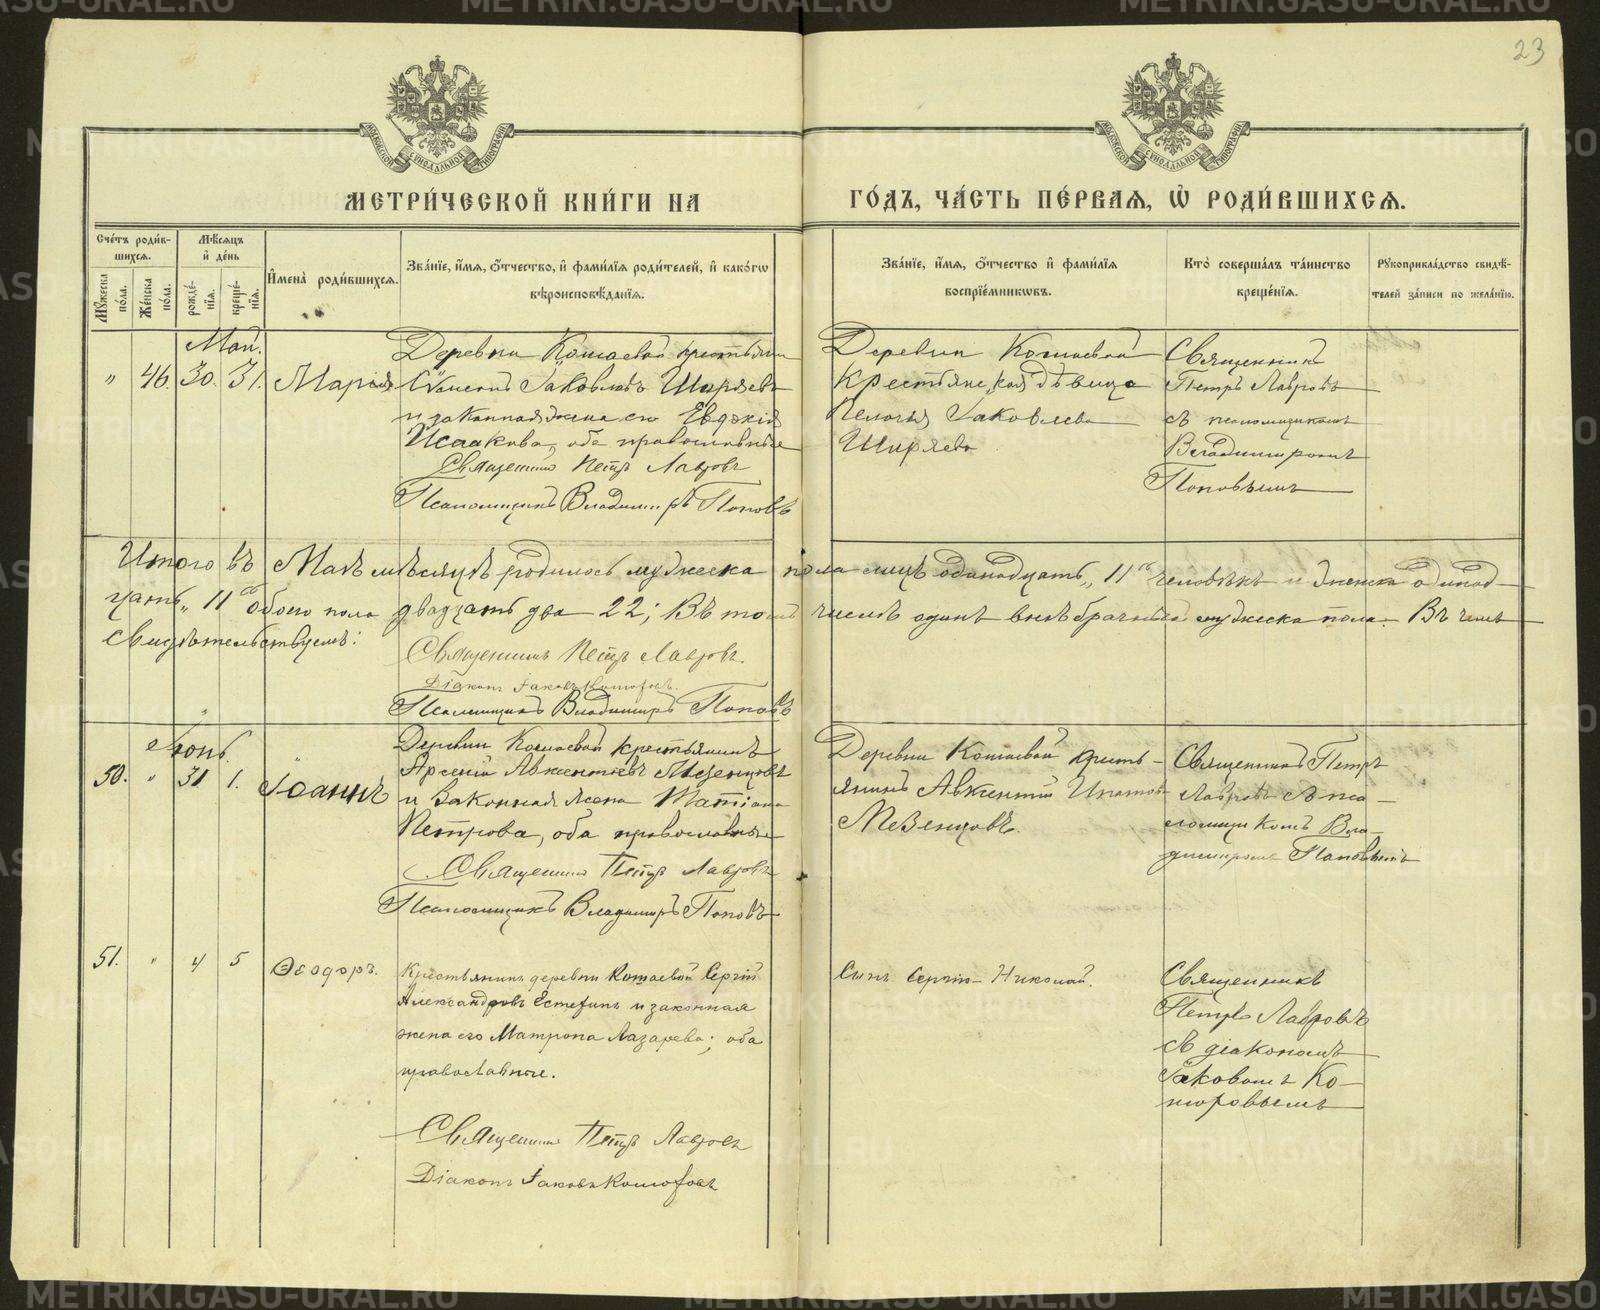 23
МОСКОВСКОЙ СѴНОДАЛЬНОЙ ТИПОГРАФІИ
МОСКОВСКОЙ СѴНОДАЛЬНОЙ ТИПОГРАФІИ
МЕТРИ́ЧЕСКОЙ КНИ́ГИ НА
ГО́ДЪ, ЧА́СТЬ ПЕ́РВАѦ, Ѡ҆ РОДИ́ВШИХСѦ.
Сче́тъ роди́в-
шихсѧ.
Мꙋ́жеска по́ла.
Же́нска по́ла.
Мѣ́сѧцъ
и҆ де́нь
рожде́-
нїѧ.
креще́-
нїѧ.
И҆мена̀ роди́вшихсѧ.
Зва́нїе, и҆́мѧ, ѻ҆́тчество, и҆ фами́лїѧ роди́телей, и҆ како́гѡ
вѣроисповѣ́данїѧ.
Зва́нїе, и҆́мѧ, ѻ҆́тчество и҆ фами́лїѧ
воспрїе́мникѡвъ.
Кто̀ соверша́лъ та́инство
креще́нїѧ.
Рꙋкоприкла́дство свидѣ́-
телей за́писи по жела́нїю.
Май.
" 46. 30. 31. Марія
Деревни Кошаевой крестьянин
Симеонъ Іаковлевъ Ширяевъ
и законная жена его Евдокія
Исаакова, оба православные
Священникъ Петръ Лавровъ
Псаломщикъ Владимиръ Поповъ
Деревни Кошаевой
крестьянская девица
Пелагія Іаковлева
Ширяева
Священникъ
Петръ Лавровъ
съ псаломщикомъ
Владимиромъ
Поповымъ
Итого въ Маѣ мѣсяцѣ родилось мужеска пола лицъ одинадцать „11" человѣкъ и женска одинад-
цать „11" обоего пола двадцать два 22; Въ томъ числѣ одинъ внѣбрачный мужеска пола. Въ чемъ
свидѣтельствуемъ:
Священникъ Петръ Лавровъ.
Діаконъ Іаковъ Комаровъ.
Псаломщикъ Владимиръ Поповъ
Іюнь.
50. " 31 1. Іоаннъ
Деревни Кошаевой крестьянинъ
Арсеній Авксентіевъ Мезенцовъ
и законная жена Татіана
Петрова, оба православные
Священникъ Петръ Лавровъ
Псаломщикъ Владимиръ Поповъ
Деревни Кошаевой кресть-
янинъ Авксентій Ипатовъ
Мезенцовъ.
Священникъ Петръ
Лавровъ съ пса-
ломщикомъ Вла-
димиромъ Поповымъ
51. " 4 5 Ѳеодоръ.
Крестьянинъ деревни Кошаевой Сергій
Александровъ Естефинъ и законная
жена его Матрона Лазарева; оба
православные.
Священникъ Петръ Лавровъ
Діаконъ Іаковъ Комаровъ
Сынъ Сергія Николай.
Священникъ
Петръ Лавровъ
съ діакономъ
Іаковомъ Ко-
маровымъ
METRIKI.GASO-URAL.RU